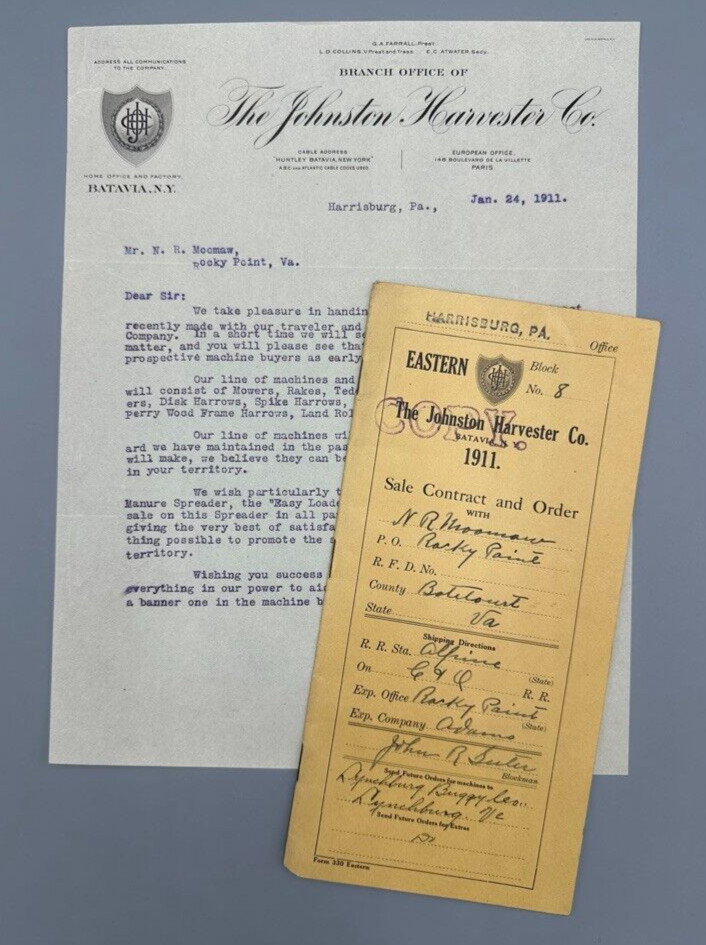 G.A. FARRALL, Prest.
L.D. COLLINS, V. Prest and Treas. E.C. ATWATER, Secy.
ADDRESS ALL COMMUNICATIONS
TO THE COMPANY.
BRANCH OFFICE OF
The Johnston Harvester Co.
CABLE ADDRESS
"HUNTLEY BATAVIA, NEW YORK"
A.B.C. AND ATLANTIC CABLE CODES USED.
EUROPEAN OFFICE,
148 BOULEVARD DE LA VILLETTE
PARIS.
HOME OFFICE AND FACTORY,
BATAVIA, N.Y.
Harrisburg, Pa., Jan. 24, 1911.
Mr. N. R. Moomaw,
Rocky Point, Va.
Dear Sir:
We take pleasure in handin
recently made with our traveler and
Company. In a short time we will s
matter, and you will please see tha
prospective machine buyers as early
Our line of machines and
will consist of Mowers, Rakes, Tedd
ers, Disk Harrows, Spike Harrows,
perry Wood Frame Harrows, Land Rol
Our line of machines wi
ard we have maintained in the pas
will make, we believe they can be
in your territory.
We wish particularly t
Manure Spreader, the "Easy Loade
sale on this Spreader in all pa
giving the very best of satisfa
thing possible to promote the s
territory.
Wishing you success
everything in our power to aid
a banner one in the machine b
HARRISBURG, PA.
Office
EASTERN Block
No. 8
COPY.
The Johnston Harvester Co.
BATAVIA, N.Y.
1911.
Sale Contract and Order
WITH
N R Moomaw
P. O. Rocky Point
R. F. D. No.
County Botetourt
State Va
Shipping Directions
R. R. Sta. Alpine (State)
On C & O R. R.
Exp. Office Rocky Point (State)
Exp. Company Adams
John R Suter
Blockman
Send Future Orders for machines to
Lynchburg Buggy Co.
Lynchburg Va
Send Future Orders for Extras
Form 330 Eastern